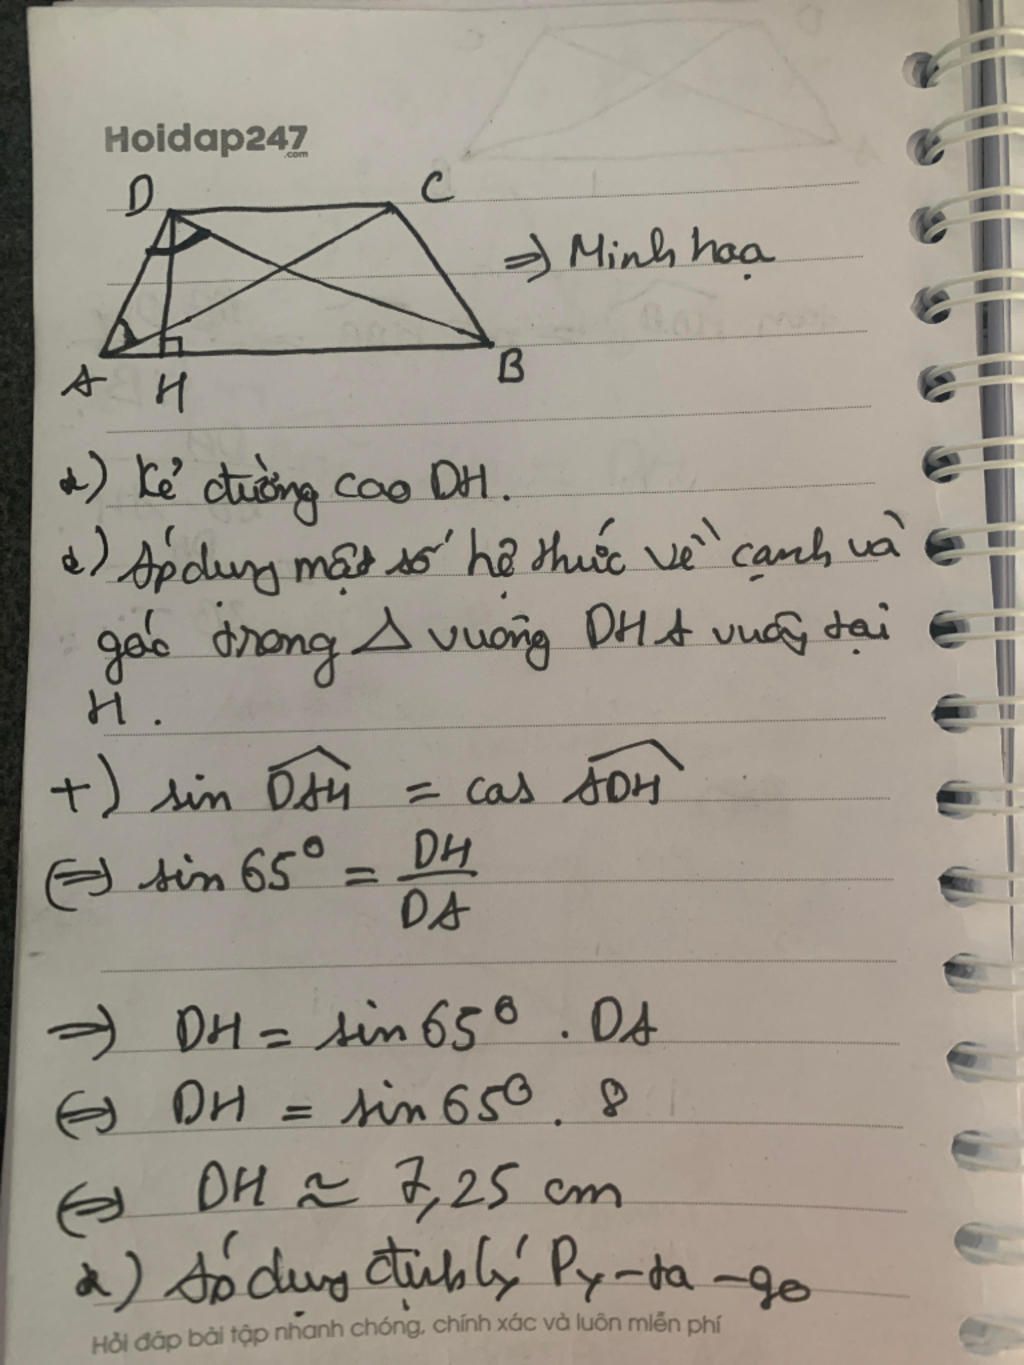 Hoidap247
.com
D C
⇒) Minh hoạ
A H B
*) Kẻ đường cao DH.
*) Áp dụng một số hệ thức về cạnh và
góc trong Δ vuông DHA vuông tại
H.
+) sin DAH = cos ADH
(⇔) sin 65° = DH/DA
⇒) DH = sin 65° . DA
(⇔) DH = sin 65° . 8
(⇔) DH ≈ 7,25 cm
*) Áp dụng định lý Py-ta-go
Hỏi đáp bài tập nhanh chóng, chính xác và luôn miễn phí